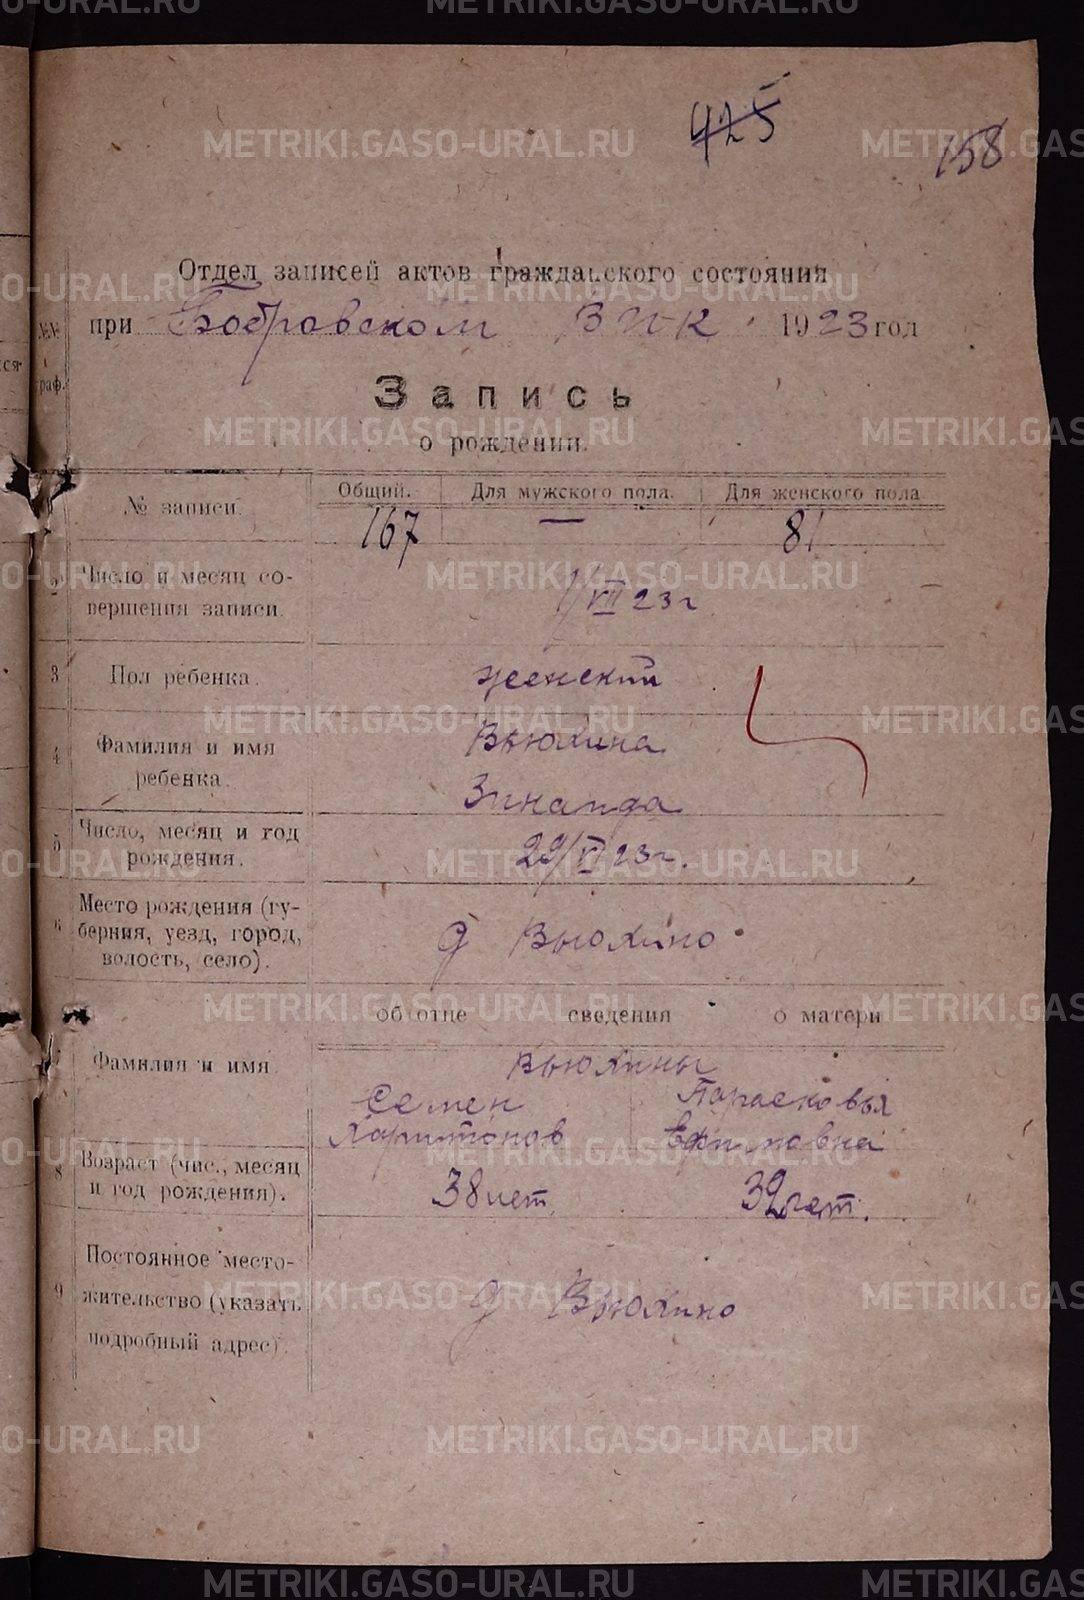 425
158
Отдел записей актов гражданского состояния
при Бобровском ВИК 1923 год
№№
граф.
Запись
о рождении.
№ записи.
Общий.
Для мужского пола.
Для женского пола
167
—
81
2
Число и месяц совершения записи.
1/VII 23 г
3
Пол ребенка.
женский
4
Фамилия и имя
ребенка.
Вьюхина
Зинаида
5
Число, месяц и год
рождения.
29/VI 23 г.
6
Место рождения (губерния, уезд, город,
волость, село).
д Вьюхино
об отце сведения о матери
Фамилия и имя
Вьюхины
Семен
Харитонов
Парасковья
Ефимовна
8
Возраст (чис., месяц
и год рождения).
38 лет
39 лет.
9
Постоянное местожительство (указать
подробный адрес).
д Вьюхино
METRIKI.GASO-URAL.RU